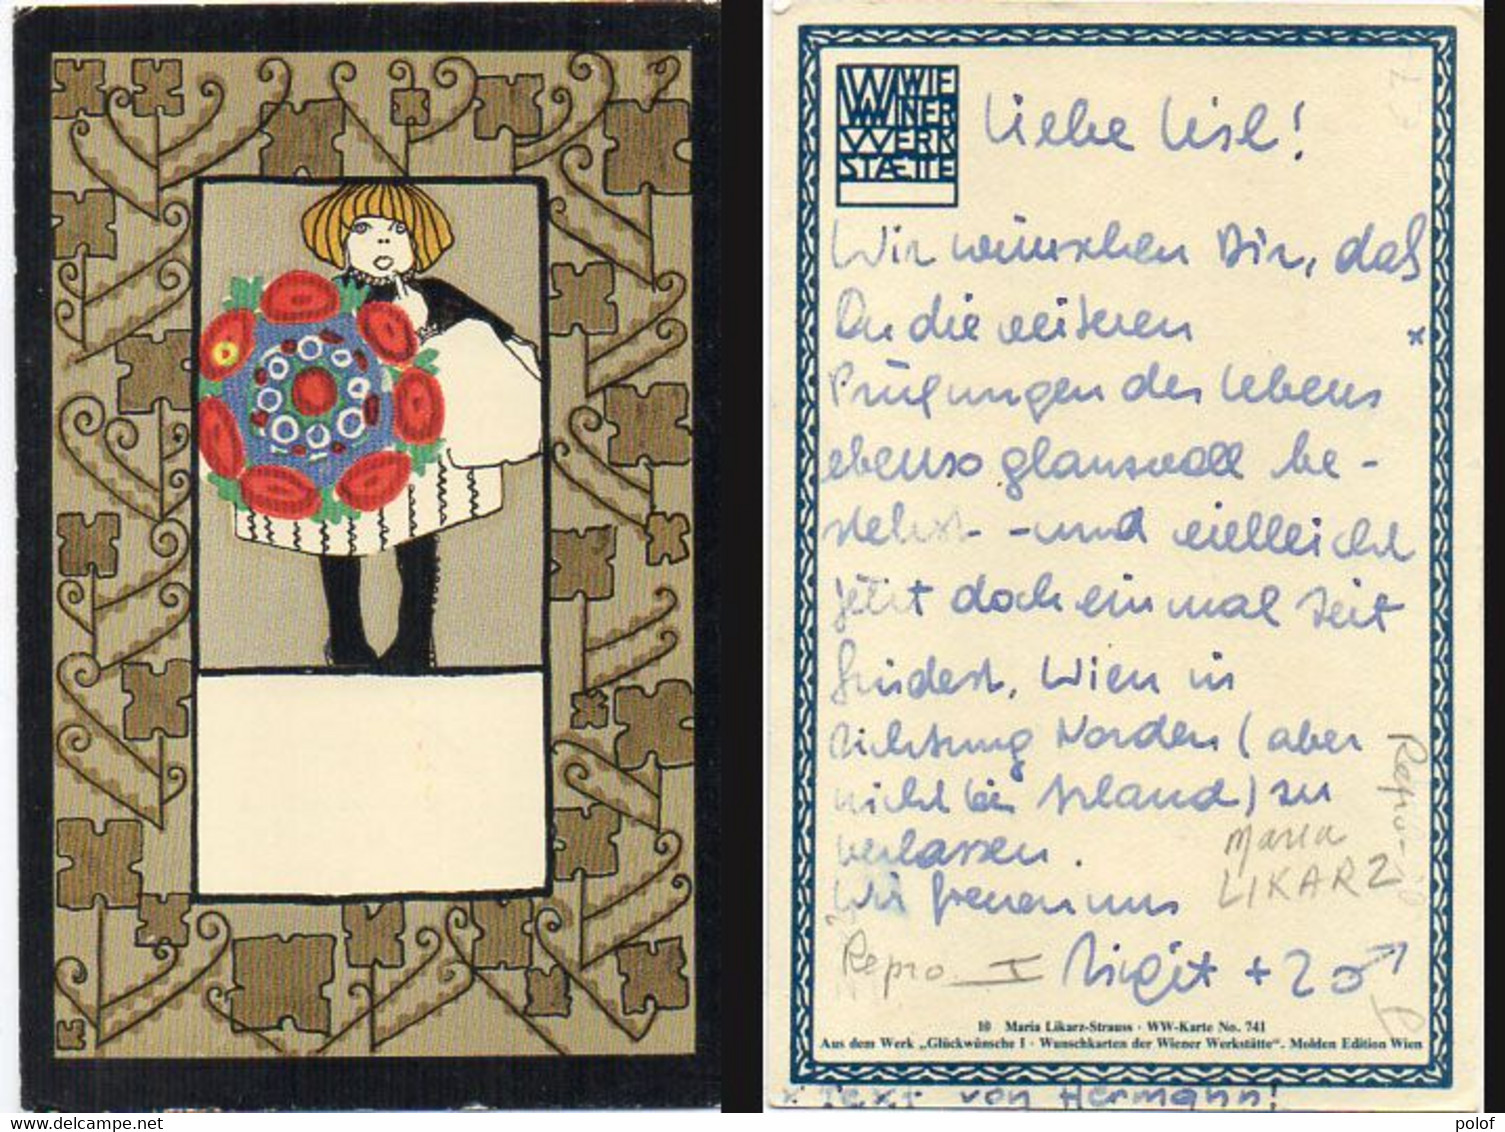 WIE
WINER
WERK
STÆTTE
Liebe Lisl!
Wir wünschen Dir, daß
Du die weiteren *
Prüfungen des Lebens
ebenso glanzvoll be-
stehst - und vielleicht
jetzt doch einmal Zeit
findest, Wien in
Richtung Norden (aber
nicht bis Irland) zu
verlassen.
Maria
LIKARZ
Repro
Wir freuen uns
Repro I
Birgit + 2 ♂
10 Maria Likarz-Strauss · WW-Karte No. 741
Aus dem Werk „Glückwünsche I · Wunschkarten der Wiener Werkstätte“. Molden Edition Wien
* Text von Hermann!
www.delcampe.net
polof